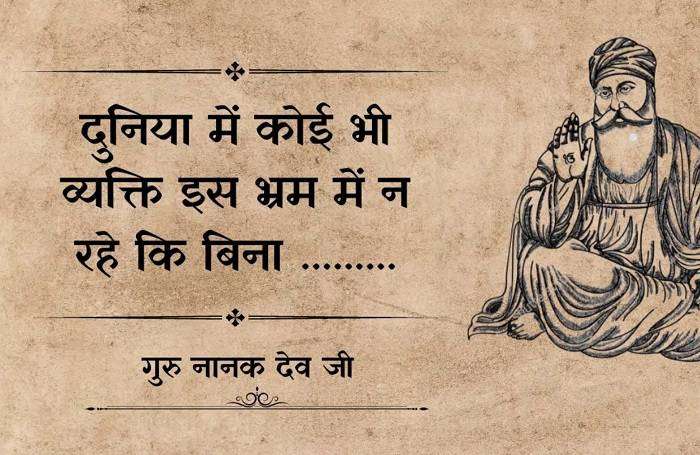 दुनिया में कोई भी
व्यक्ति इस भ्रम में न
रहे कि बिना .........
गुरु नानक देव जी